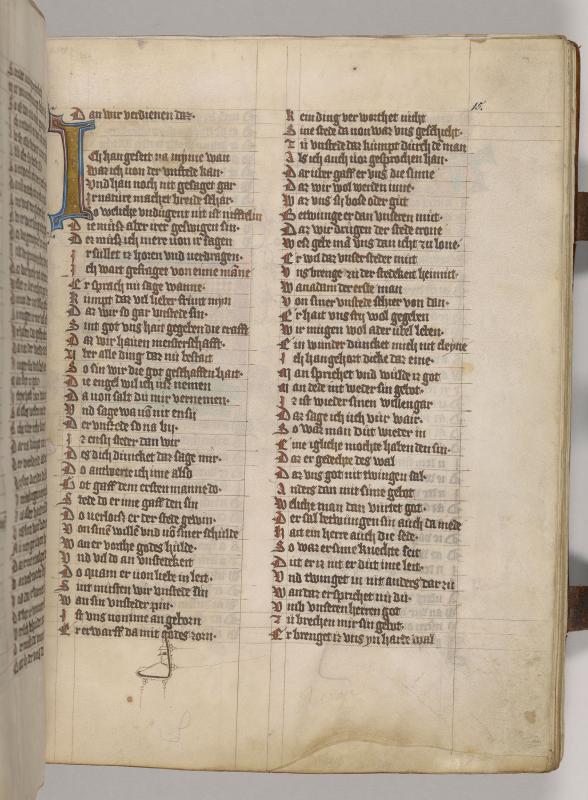 15.
Dan wir verdienen dar.
Ich han geseit na mynne wan
War ich von der vnstede kan.
Vnd han noch nit gesaget gar
Ir nature machet breide schar.
So weliche vndugent nit ist
Die muß aber irer geswigen sin.
Der muß ich mere von ir sagen
Ir sullet iz horen vnd verdragen.
Ich wart gefraget von eime manne
Er sprach nu sage wanne.
Kumpt daz vil lieber frunt myn
Daz wir so gar vnstede sin.
Sint got vns hait gegeben die crafft
Daz wir hauen meisterschafft.
Vber alle ding daz nu bestait
So sin wir die got geschaffen hait.
Die engel wil ich uß nemen
Da von salt du mir vernemen.
Vnd sage wa von nit ensy
Der vnstede so na by.
Iz ensy steder dan wir
Des dich duncket daz sage mir.
Do antwerte ich ime also
Got gaff dem ersten manne do.
Stede do er ime gaff den sin
Do verlorß er der stede gewin.
Von sinem willen vnd von siner schulde
Wan er vorthe godes hulde.
Vnd viel do an vnstedekeit
Do quam er von liebe in leit.
Sint musten wir vnstede sin
Wan sin vnstede pin.
Ist vns von ime an geborn
Er erwarff da mit godes zorn.
Kein ding ver worthet nicht
Sine stede da von war vns geschicht.
Die vnstede daz kumpt durch den man
Als ich auch vor gesprochen han.
Dar uber gaff er vns die sinne
Daz wir wol werden inne.
Waz vns sy bose oder gut
Betwinge er dan vnseren mut.
Daz wir drugen der stede crone
West gebe man vns dan icht zu lone.
Er wil daz vnser steder mut
Vns brenge zu der stedekeit
Wan adam der erste man
Von siner vnstede schier von dan.
Er hait vns fry wol gegeben
Wir mugen wol ader ubel leben.
Ein wunder duncket mich nit cleyne
Ich han gehort dicke daz eine.
Man sprichet vnd wulde iz got
Man dede nit weder sin gebot.
Iz ist wieder sinen willen gar
Daz sage ich uch vur war.
So waz man dut wieder in
Eine igliche mochte haben den sin.
Daz er gedechte des wal
Daz vns got nit twingen sal.
Anders dan mit sime gebot
Welche man dan vurtet got.
Der sal betwingen sin auch da mede
Hait ein herre auch die sede.
So waz er sime knechte seit
Dut er iz nit er dut ime leit.
Vnd twinget in nit anders dar zu
Wan daz er sprichet nu du.
Vnsen vnseren herren got
Zu brechen mir sin gebot.
Er brenget iz vns yn harde wal